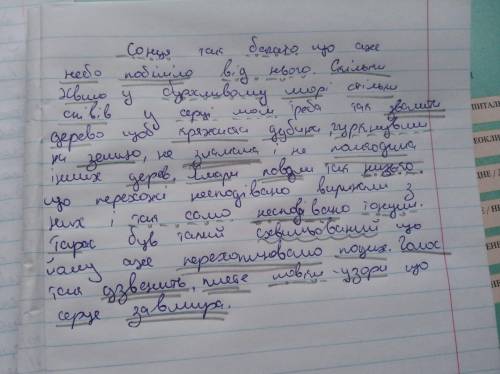 Сонця так багато, що аже
небо побіліло від нього. Скільки
хвиль у бурхливому морі стільки
співів у серці моїм. Треба так звалити
дерево щоб кряжиста дубина, гуркнувши
на землю, не зламала і не пошкодила
інших дерев. Хмари повзли так низько.
що перехожі несподівано виринали з
них і так само несподівано тонули.
Тарас був такий схвильований що
йому аже перехоплювало подих. Голос
так дзвенить, плете мовби узори що
серце завмира.
ПИТАЛЬ